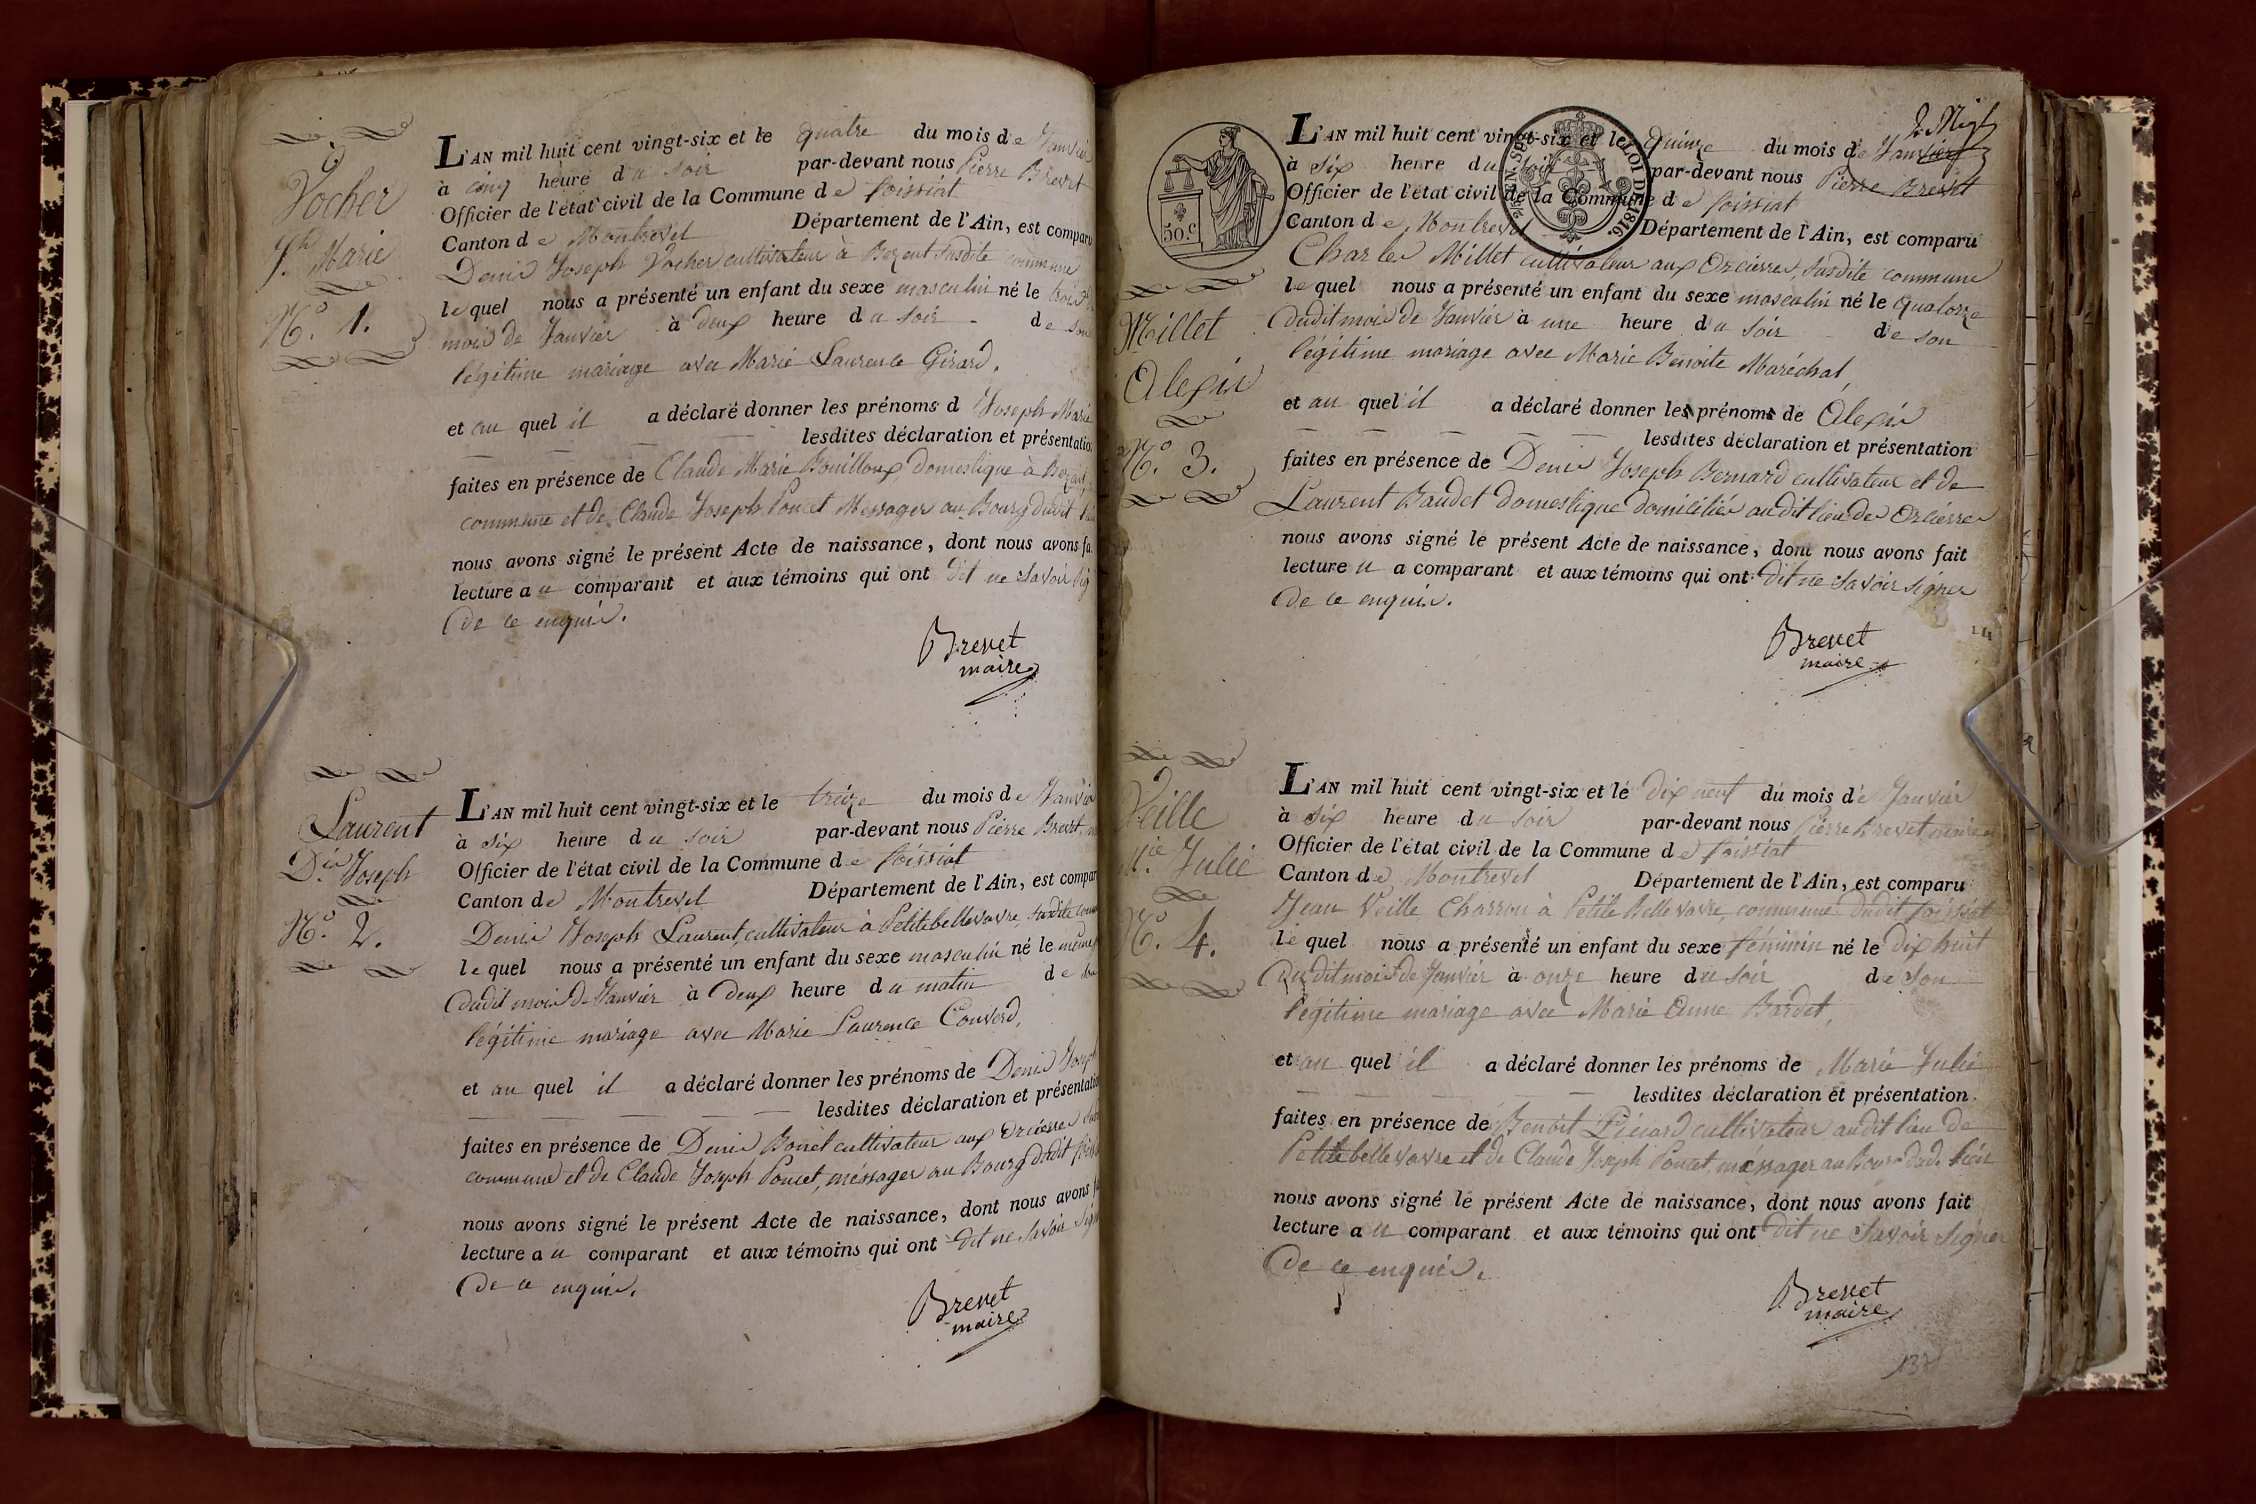 Vocher
Jh. Marie
N.o 1.
L'AN mil huit cent vingt-six et le quatre du mois de Janvier
à cinq heure du soir par-devant nous Pierre Brevet
Officier de l'état civil de la Commune de foissiat
Canton de Montrevel Département de l'Ain, est comparu
Denis Joseph Vocher cultivateur à Bezent susdite commune
lequel nous a présenté un enfant du sexe masculin né le trois
mois de Janvier à deux heure du soir de son
légitime mariage avec Marie Laurence Girard,
et au quel il a déclaré donner les prénoms d Joseph Marie
lesdites déclaration et présentation
faites en présence de Claude Marie Bouilloux domestique à
commune et de Claude Joseph Poncet Messager au Bourg dudit
nous avons signé le présent Acte de naissance, dont nous avons fa
lecture au comparant et aux témoins qui ont dit ne savoir sig
de ce enquis.
Brevet
maire
Laurent
D.is Joseph
N.o 2.
L'AN mil huit cent vingt-six et le treize du mois de Janvier
à six heure du soir par-devant nous Pierre Brevet
Officier de l'état civil de la Commune de foissiat
Canton de Montrevel Département de l'Ain, est compar
Denis Joseph Laurent, cultivateur à Petitebellevavre, susdite com
lequel nous a présenté un enfant du sexe masculin né le même
dudit mois de Janvier à deux heure du matin de son
légitime mariage avec Marie Laurence Converd,
et au quel il a déclaré donner les prénoms de Denis Joseph
lesdites déclaration et présentation
faites en présence de Denis Bonet cultivateur aux Orcières
commune et de Claude Joseph Poncet, méssager au Bourg dudit
nous avons signé le présent Acte de naissance, dont nous avons f
lecture au comparant et aux témoins qui ont dit ne savoir sign
de ce enquis.
Brevet
maire
50.c
LOI DE 1816.
Millet
Alexis
N.o 3.
L'AN mil huit cent vingt-six et le Quinze du mois de Janvier
à six heure du soir par-devant nous Pierre Brevet
Officier de l'état civil de la Commune de foissiat
Canton de Montrevel Département de l'Ain, est comparu
Charles Millet cultivateur aux Orcières, susdite commune
lequel nous a présenté un enfant du sexe masculin né le quatorze
dudit mois de Janvier à une heure du soir de son
légitime mariage avec Marie Benoite Maréchal,
et au quel il a déclaré donner les prénoms de Alexis
lesdites déclaration et présentation
faites en présence de Denis Joseph Bernard cultivateur et de
Laurent Baudet domestique domiciliés audit lieu des Orcières
nous avons signé le présent Acte de naissance, dont nous avons fait
lecture u a comparant et aux témoins qui ont dit ne savoir signer
de ce enquis.
Brevet
maire
Veille
M.ie Julie
N.o 4.
L'AN mil huit cent vingt-six et le dix neuf du mois de Janvier
à six heure du soir par-devant nous Pierre Brevet maire
Officier de l'état civil de la Commune de foissiat
Canton de Montrevel Département de l'Ain, est comparu
Jean Veille Charron à Petite Bellevavre, commune dudit foissiat
lequel nous a présenté un enfant du sexe féminin né le dix huit
dudit mois de Janvier à onze heure du soir de son
légitime mariage avec Marie Anne Bardet,
et au quel il a déclaré donner les prénoms de Marie Julie
lesdites déclaration et présentation
faites en présence de Benoit Picard cultivateur audit lieu de
Petitebellevavre et de Claude Joseph Poncet, méssager au Bourg dud. lieu
nous avons signé le présent Acte de naissance, dont nous avons fait
lecture au comparant et aux témoins qui ont dit ne savoir signer
de ce enquis.
Brevet
maire
137